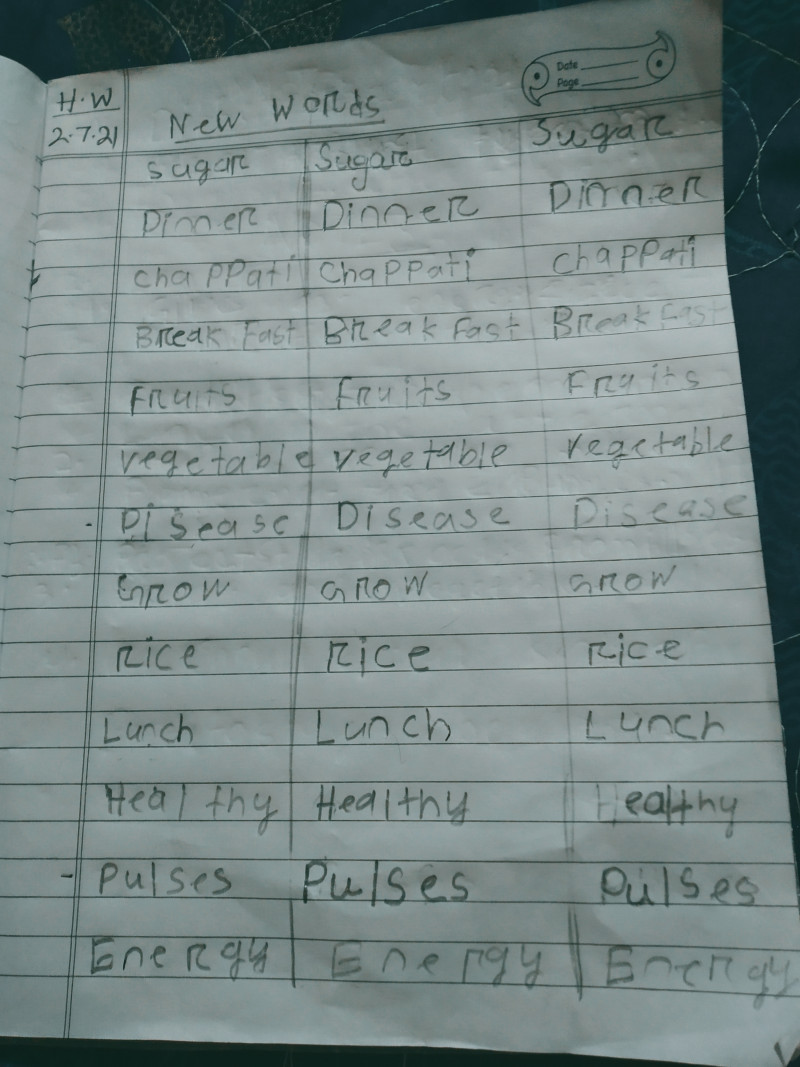 Date
Page
H.W
2.7.21 New Words
Sugar Sugar Sugar
Dinner Dinner Dinner
Chappati Chappati Chappati
Break Fast Break Fast Break Fast
Fruits Fruits Fruits
vegetable vegetable vegetable
Disease Disease Disease
Grow Grow Grow
Rice Rice Rice
Lunch Lunch Lunch
Healthy Healthy Healthy
Pulses Pulses Pulses
Energy Energy Energy